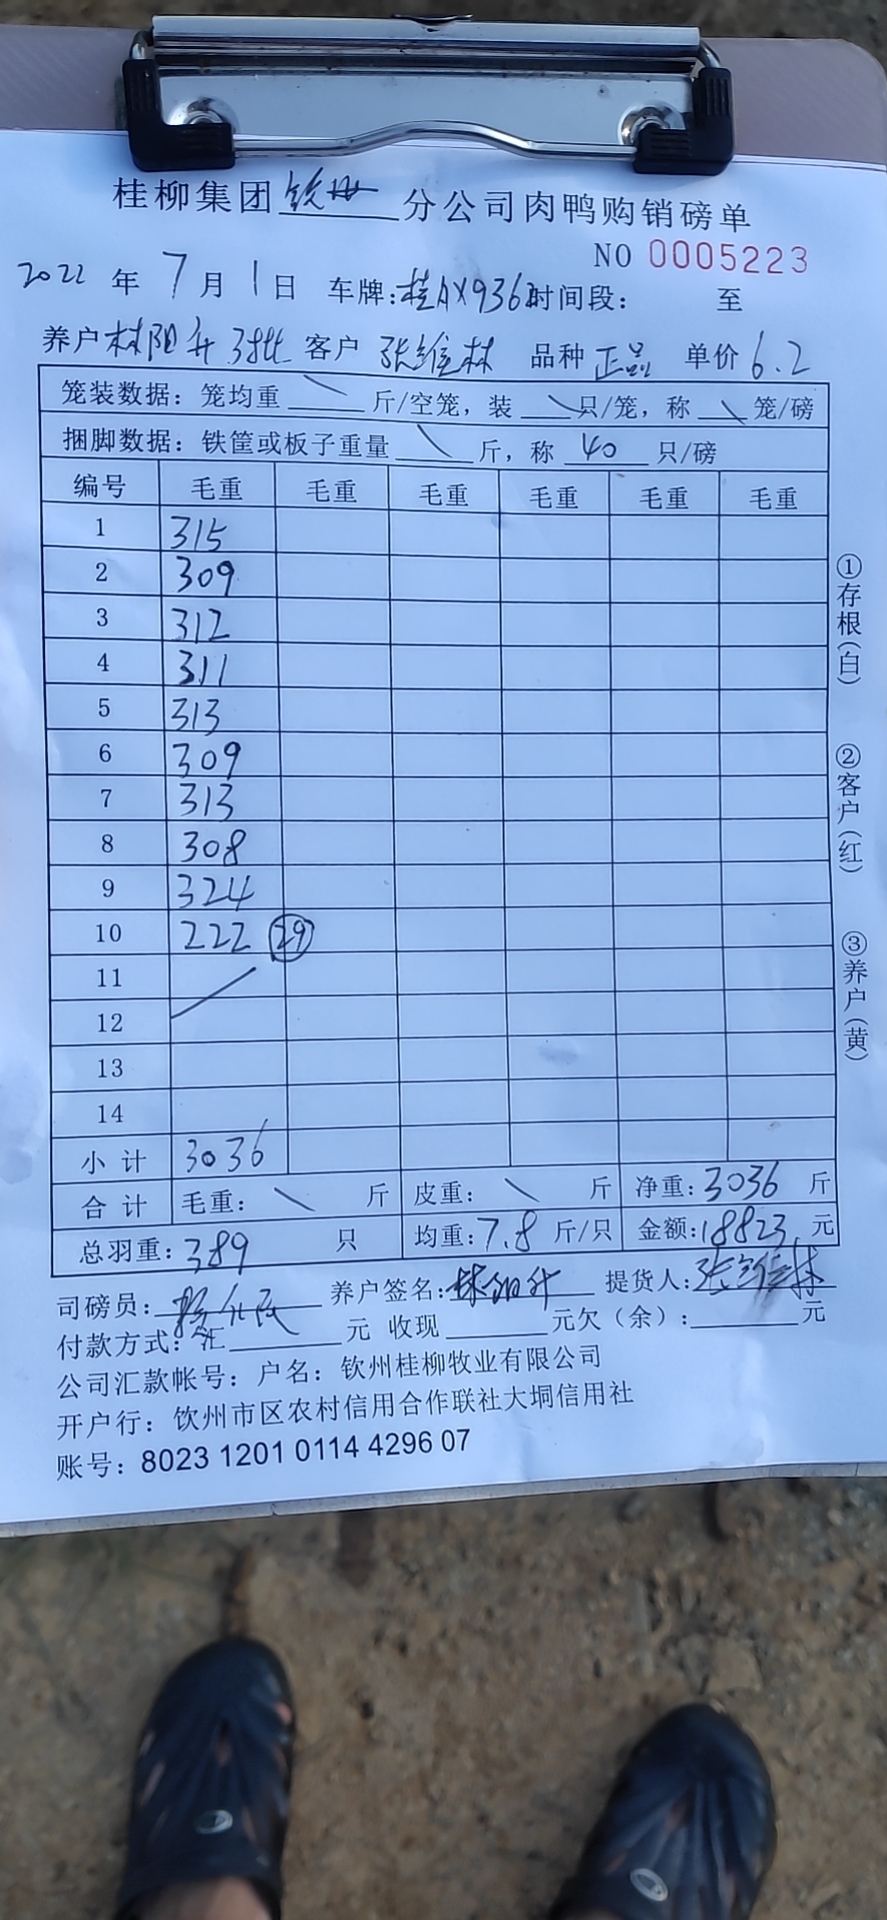 桂柳集团钦州分公司肉鸭购销磅单
NO 0005223
2022年7月1日 车牌:桂AX936 时间段: 至
养户林阳升3批 客户 张维林 品种 正品 单价6.2
笼装数据: 笼均重 \ 斤/空笼, 装 \ 只/笼, 称 \ 笼/磅
捆脚数据: 铁筐或板子重量 \ 斤, 称 40 只/磅
编号 毛重 毛重 毛重 毛重 毛重 毛重
1 315
2 309
3 312
4 311
5 313
6 309
7 313
8 308
9 324
10 222 29
11
12
13
14
小计 3036
合计 毛重: \ 斤 皮重: \ 斤 净重: 3036 斤
总羽重: 389 只 均重: 7.8 斤/只 金额: 18823 元
司磅员: 养户签名: 林阳升 提货人: 张维林
付款方式: 汇 元 收现 元欠（余）: 元
公司汇款帐号: 户名: 钦州桂柳牧业有限公司
开户行: 钦州市区农村信用合作联社大垌信用社
账号: 8023 1201 0114 4296 07
①存根（白）
②客户（红）
③养户（黄）